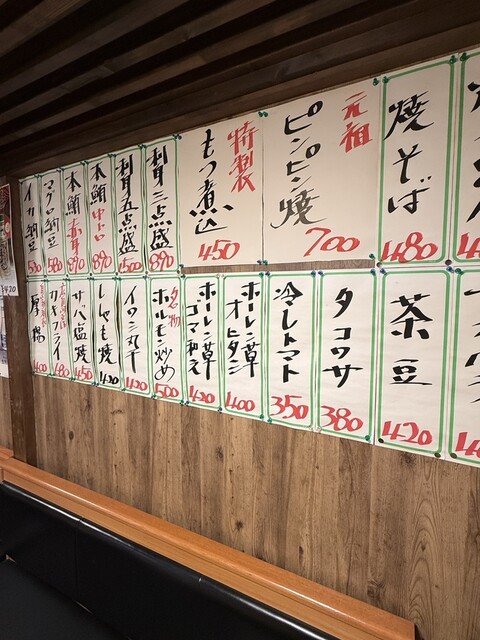 焼そば
480
元祖
ピンピン焼
700
特製
もつ煮込
450
刺身三点盛
890
刺身五点盛
1500
本鮪中トロ
890
本鮪赤身
890
マグロ納豆
580
イカ納豆
530
茶豆
420
タコワサ
380
冷しトマト
350
ホーレン草
オヒタシ
400
ホーレン草
ゴマ和え
420
名物
ホルモン炒め
500
イワシ丸干
420
ししゃも焼
420
サバ塩焼
450
カキフライ
480
厚揚
400